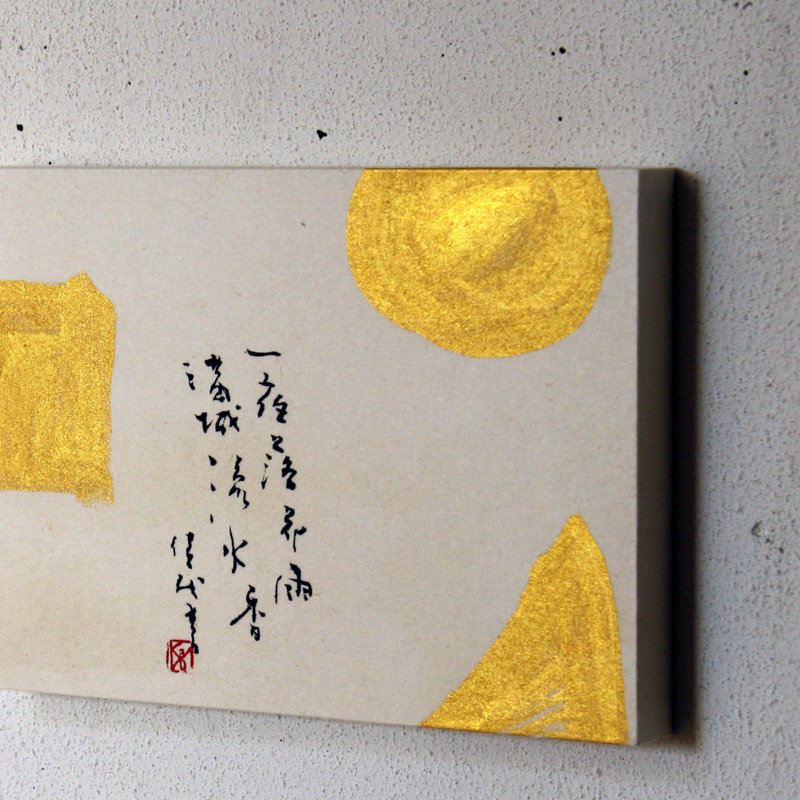 一夜落花雨
満城流水香
佳代書